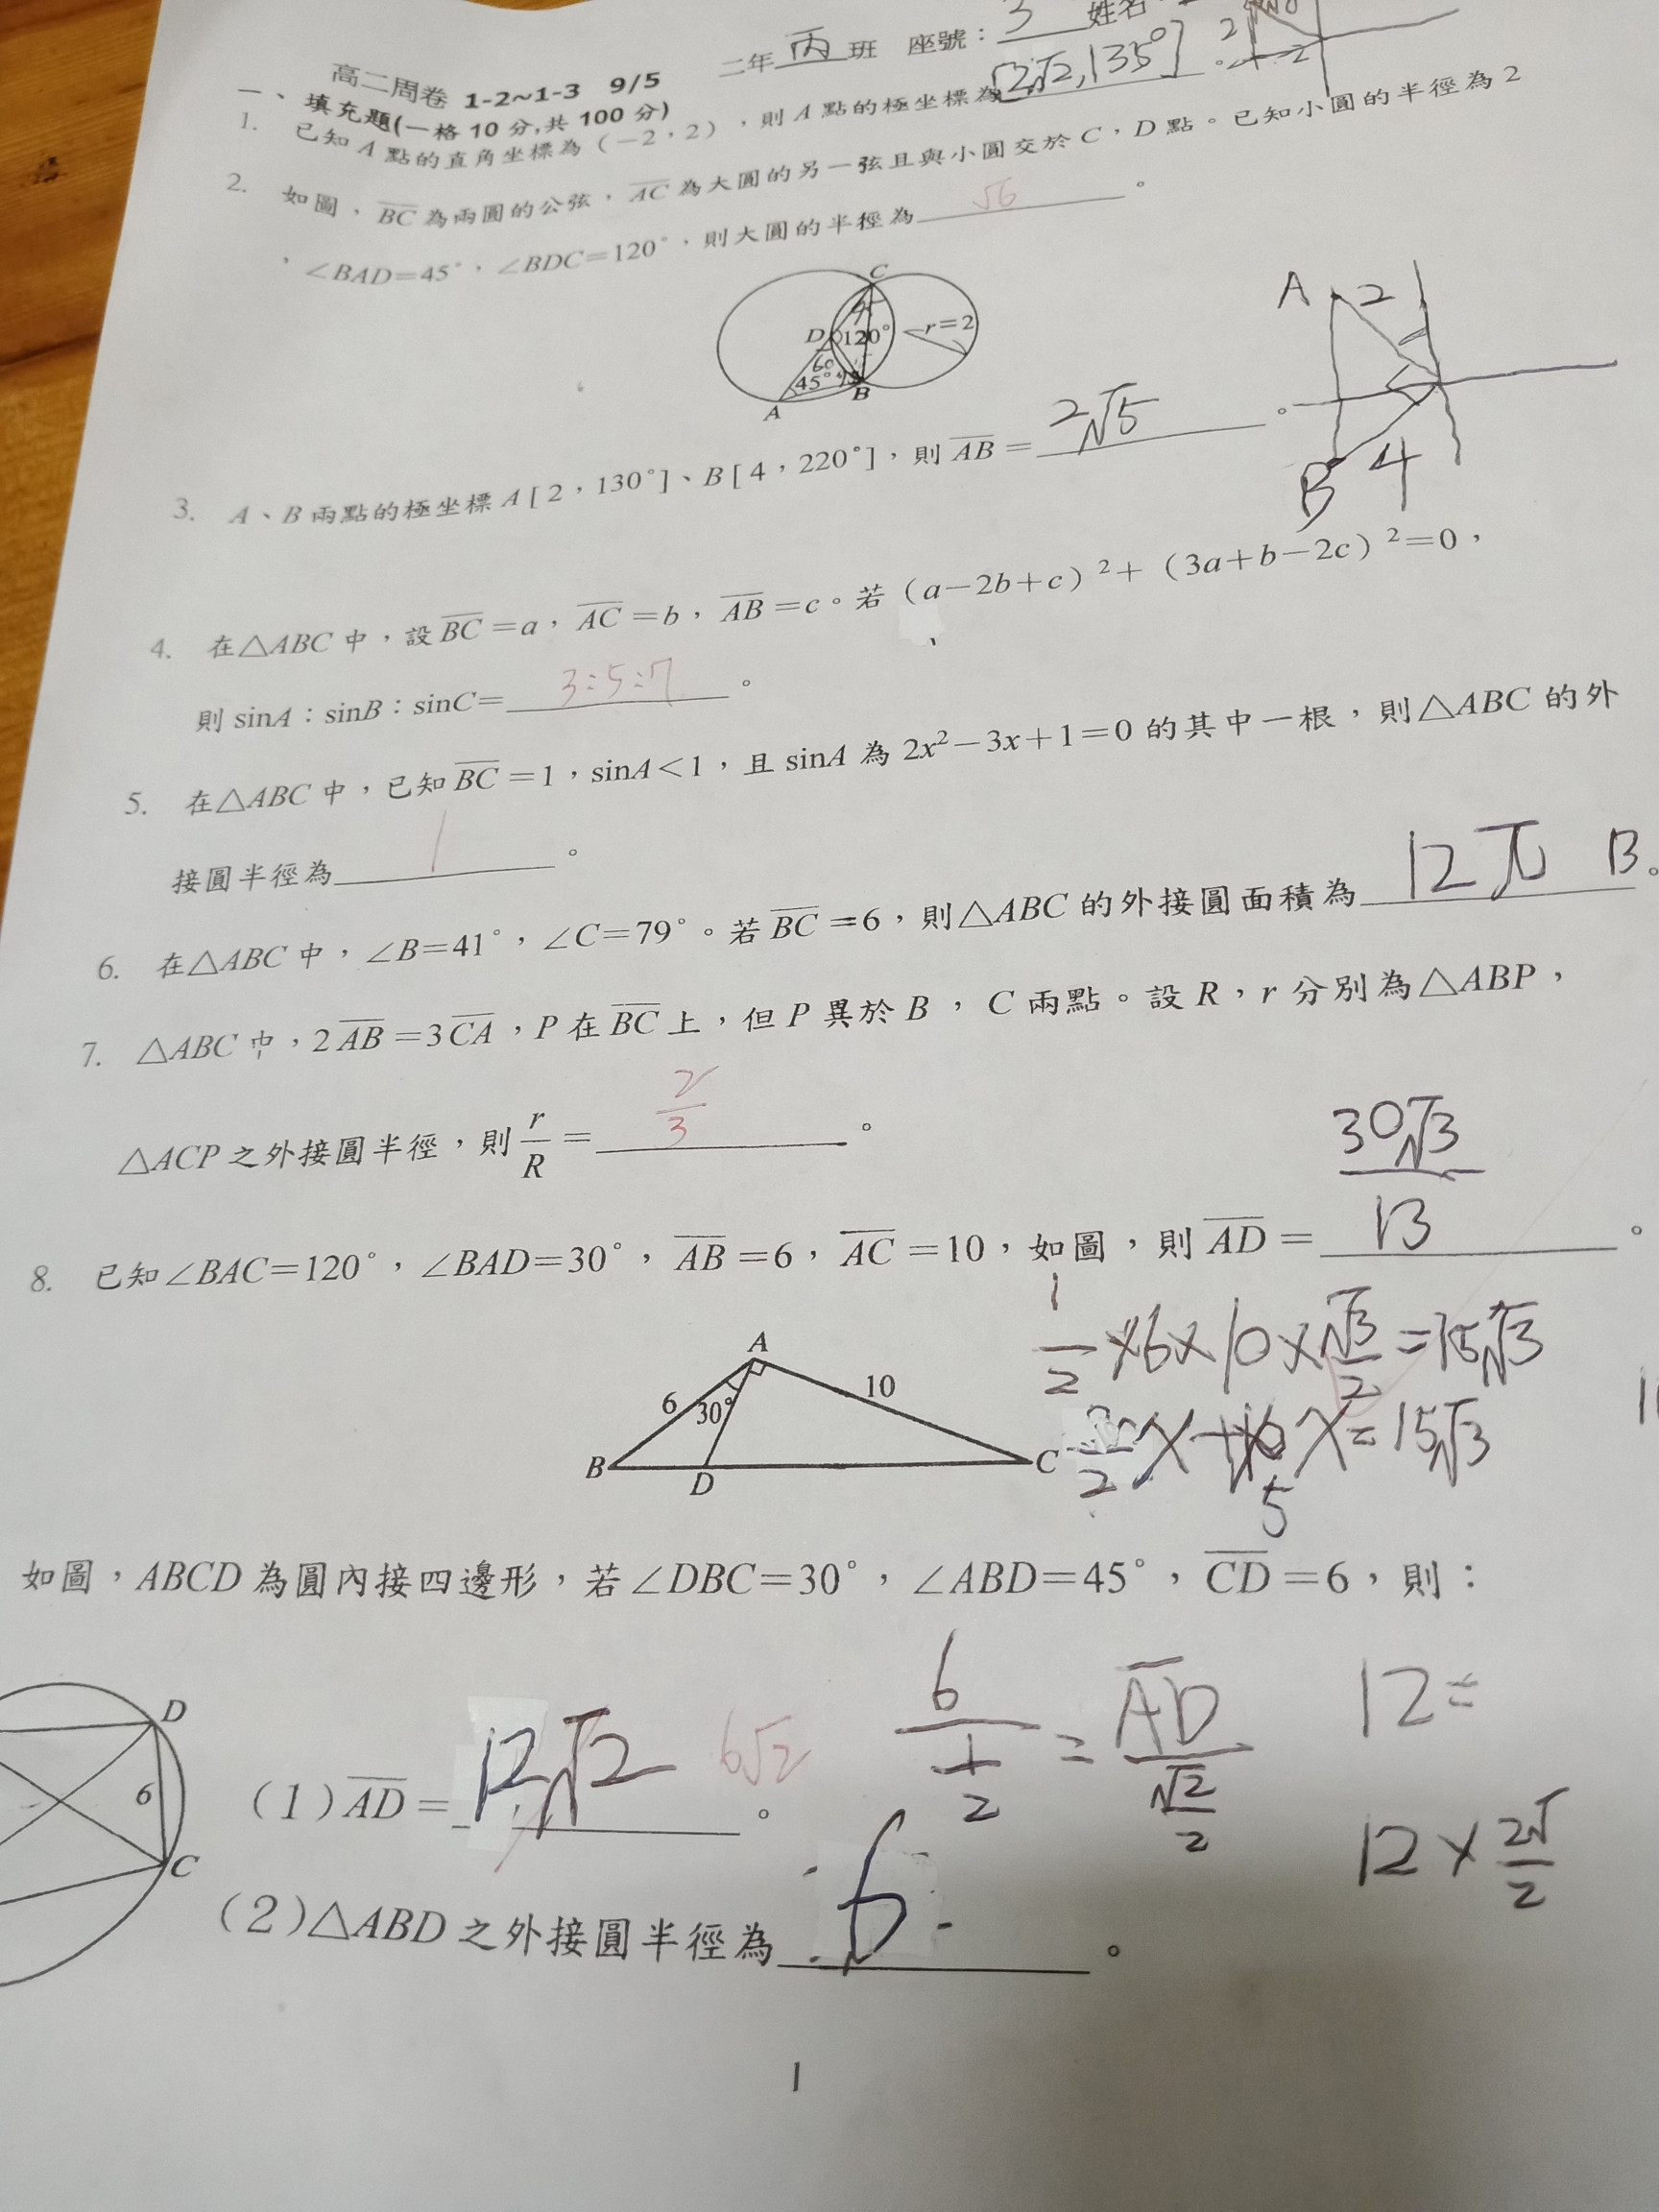 二年丙班 座號：3 姓名
高二周卷 1-2~1-3 9/5
一、填充題(一格 10 分,共 100 分)
1. 已知 A 點的直角坐標為（－2，2），則 A 點的極坐標為[2√2,135°]。
2 2
2. 如圖，BC 為兩圓的公弦，AC 為大圓的另一弦且與小圓交於 C，D 點。已知小圓的半徑為 2
，∠BAD＝45°，∠BDC＝120°，則大圓的半徑為 √6 。
C
D 120° r＝2
60
45°
A B
A 2
B 4
3. A、B 兩點的極坐標 A［2，130°］、B［4，220°］，則 AB＝ 2√5 。
4. 在△ABC 中，設 BC＝a，AC＝b，AB＝c。若（a－2b＋c）²＋（3a＋b－2c）²＝0，
則 sinA：sinB：sinC＝ 3:5:7 。
5. 在△ABC 中，已知 BC＝1，sinA＜1，且 sinA 為 2x²－3x＋1＝0 的其中一根，則△ABC 的外
接圓半徑為 1 。
6. 在△ABC 中，∠B＝41°，∠C＝79°。若 BC＝6，則△ABC 的外接圓面積為 12π 。
B
7. △ABC 中，2AB＝3CA，P 在 BC 上，但 P 異於 B， C 兩點。設 R，r 分別為△ABP，
△ACP 之外接圓半徑，則 r/R＝ 2/3 。
8. 已知∠BAC＝120°，∠BAD＝30°，AB＝6，AC＝10，如圖，則 AD＝ 30√3/13 。
A
6 30° 10
B D C
1/2×6×10×√3/2=15√3
/2 x + 5 x=15√3
如圖，ABCD 為圓內接四邊形，若∠DBC＝30°，∠ABD＝45°，CD＝6，則：
D
6
C
(1) AD＝ 12√2 。
6√2
6/(1/2) = AD/(√2/2)
12=
12×2√/2
(2)△ABD 之外接圓半徑為 6 。
1